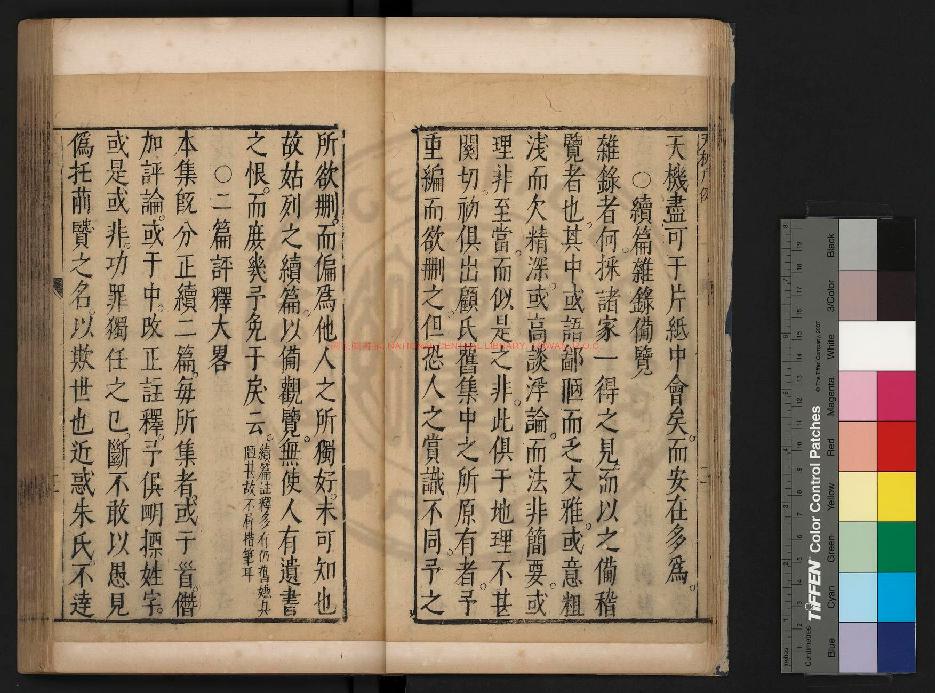 天機盡可于片紙中會矣而安在多爲
○續篇雜錄備覽
雜錄者何採諸家一得之見而以之備稽
覽者也其中或語鄙陋而乏文雅或意粗
淺而欠精深或高談浮論而法非簡要或
理非至當而似是之非此俱于地理不甚
關切初俱出顧氏舊集中之所原有者予
重編而欲刪之但恐人之賞識不同予之
所欲刪而偏爲他人之所獨好未可知也
故姑列之續篇以備觀覽無使人有遺書
之恨而庶幾予免于戾云
續篇註釋多有仍舊
陋其故不屑楷筆耳
○二篇評釋大畧
本集既分正續二篇每所集者或于首僭
加評論或于中改正註釋予俱明摽姓字
或是或非功罪獨任之已斷不敢以愚見
僞托前賢之名以欺世也近惑朱氏不達
NATIONAL CENTRAL LIBRARY, TAIWAN, R.O.C.
TIFFEN Color Control Patches
© The Tiffen Company, 2007
Blue
Cyan
Green
Yellow
Red
Magenta
White
3/Color
Black
Centimetres
Inches